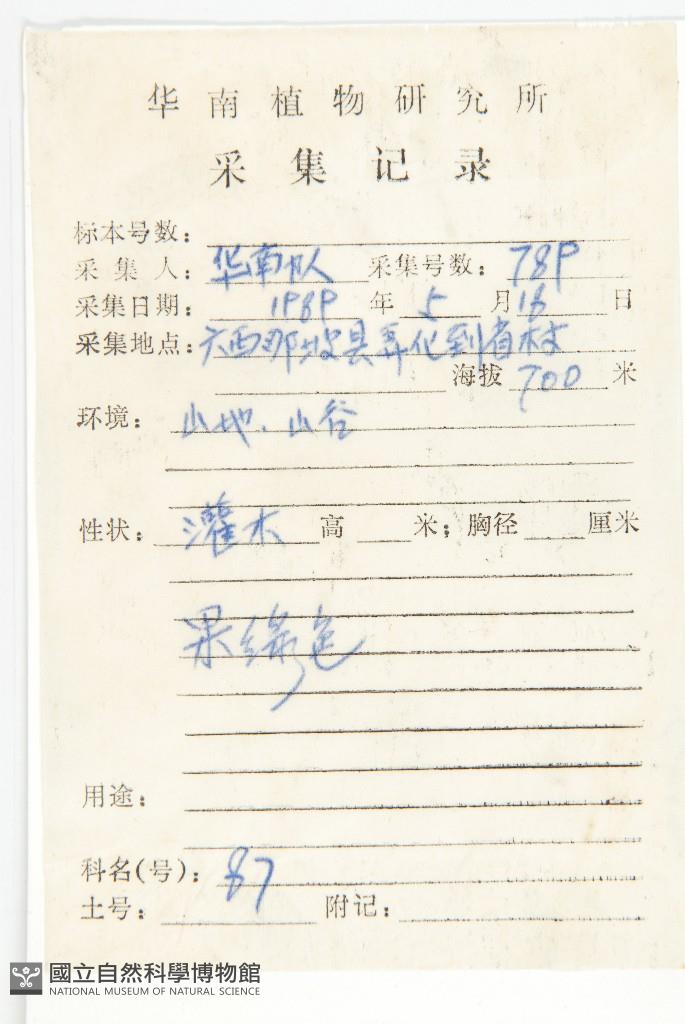 华南植物研究所
采集记录
标本号数：
采集人：华南队 采集号数：789
采集日期：1989年5月18日
采集地点：广西那坡县弄化到省村
海拔 700 米
环境：山地、山谷
性状：灌木 高 米；胸径 厘米
果绿色
用途：
科名(号)：87
土号： 附记：
國立自然科學博物館
NATIONAL MUSEUM OF NATURAL SCIENCE